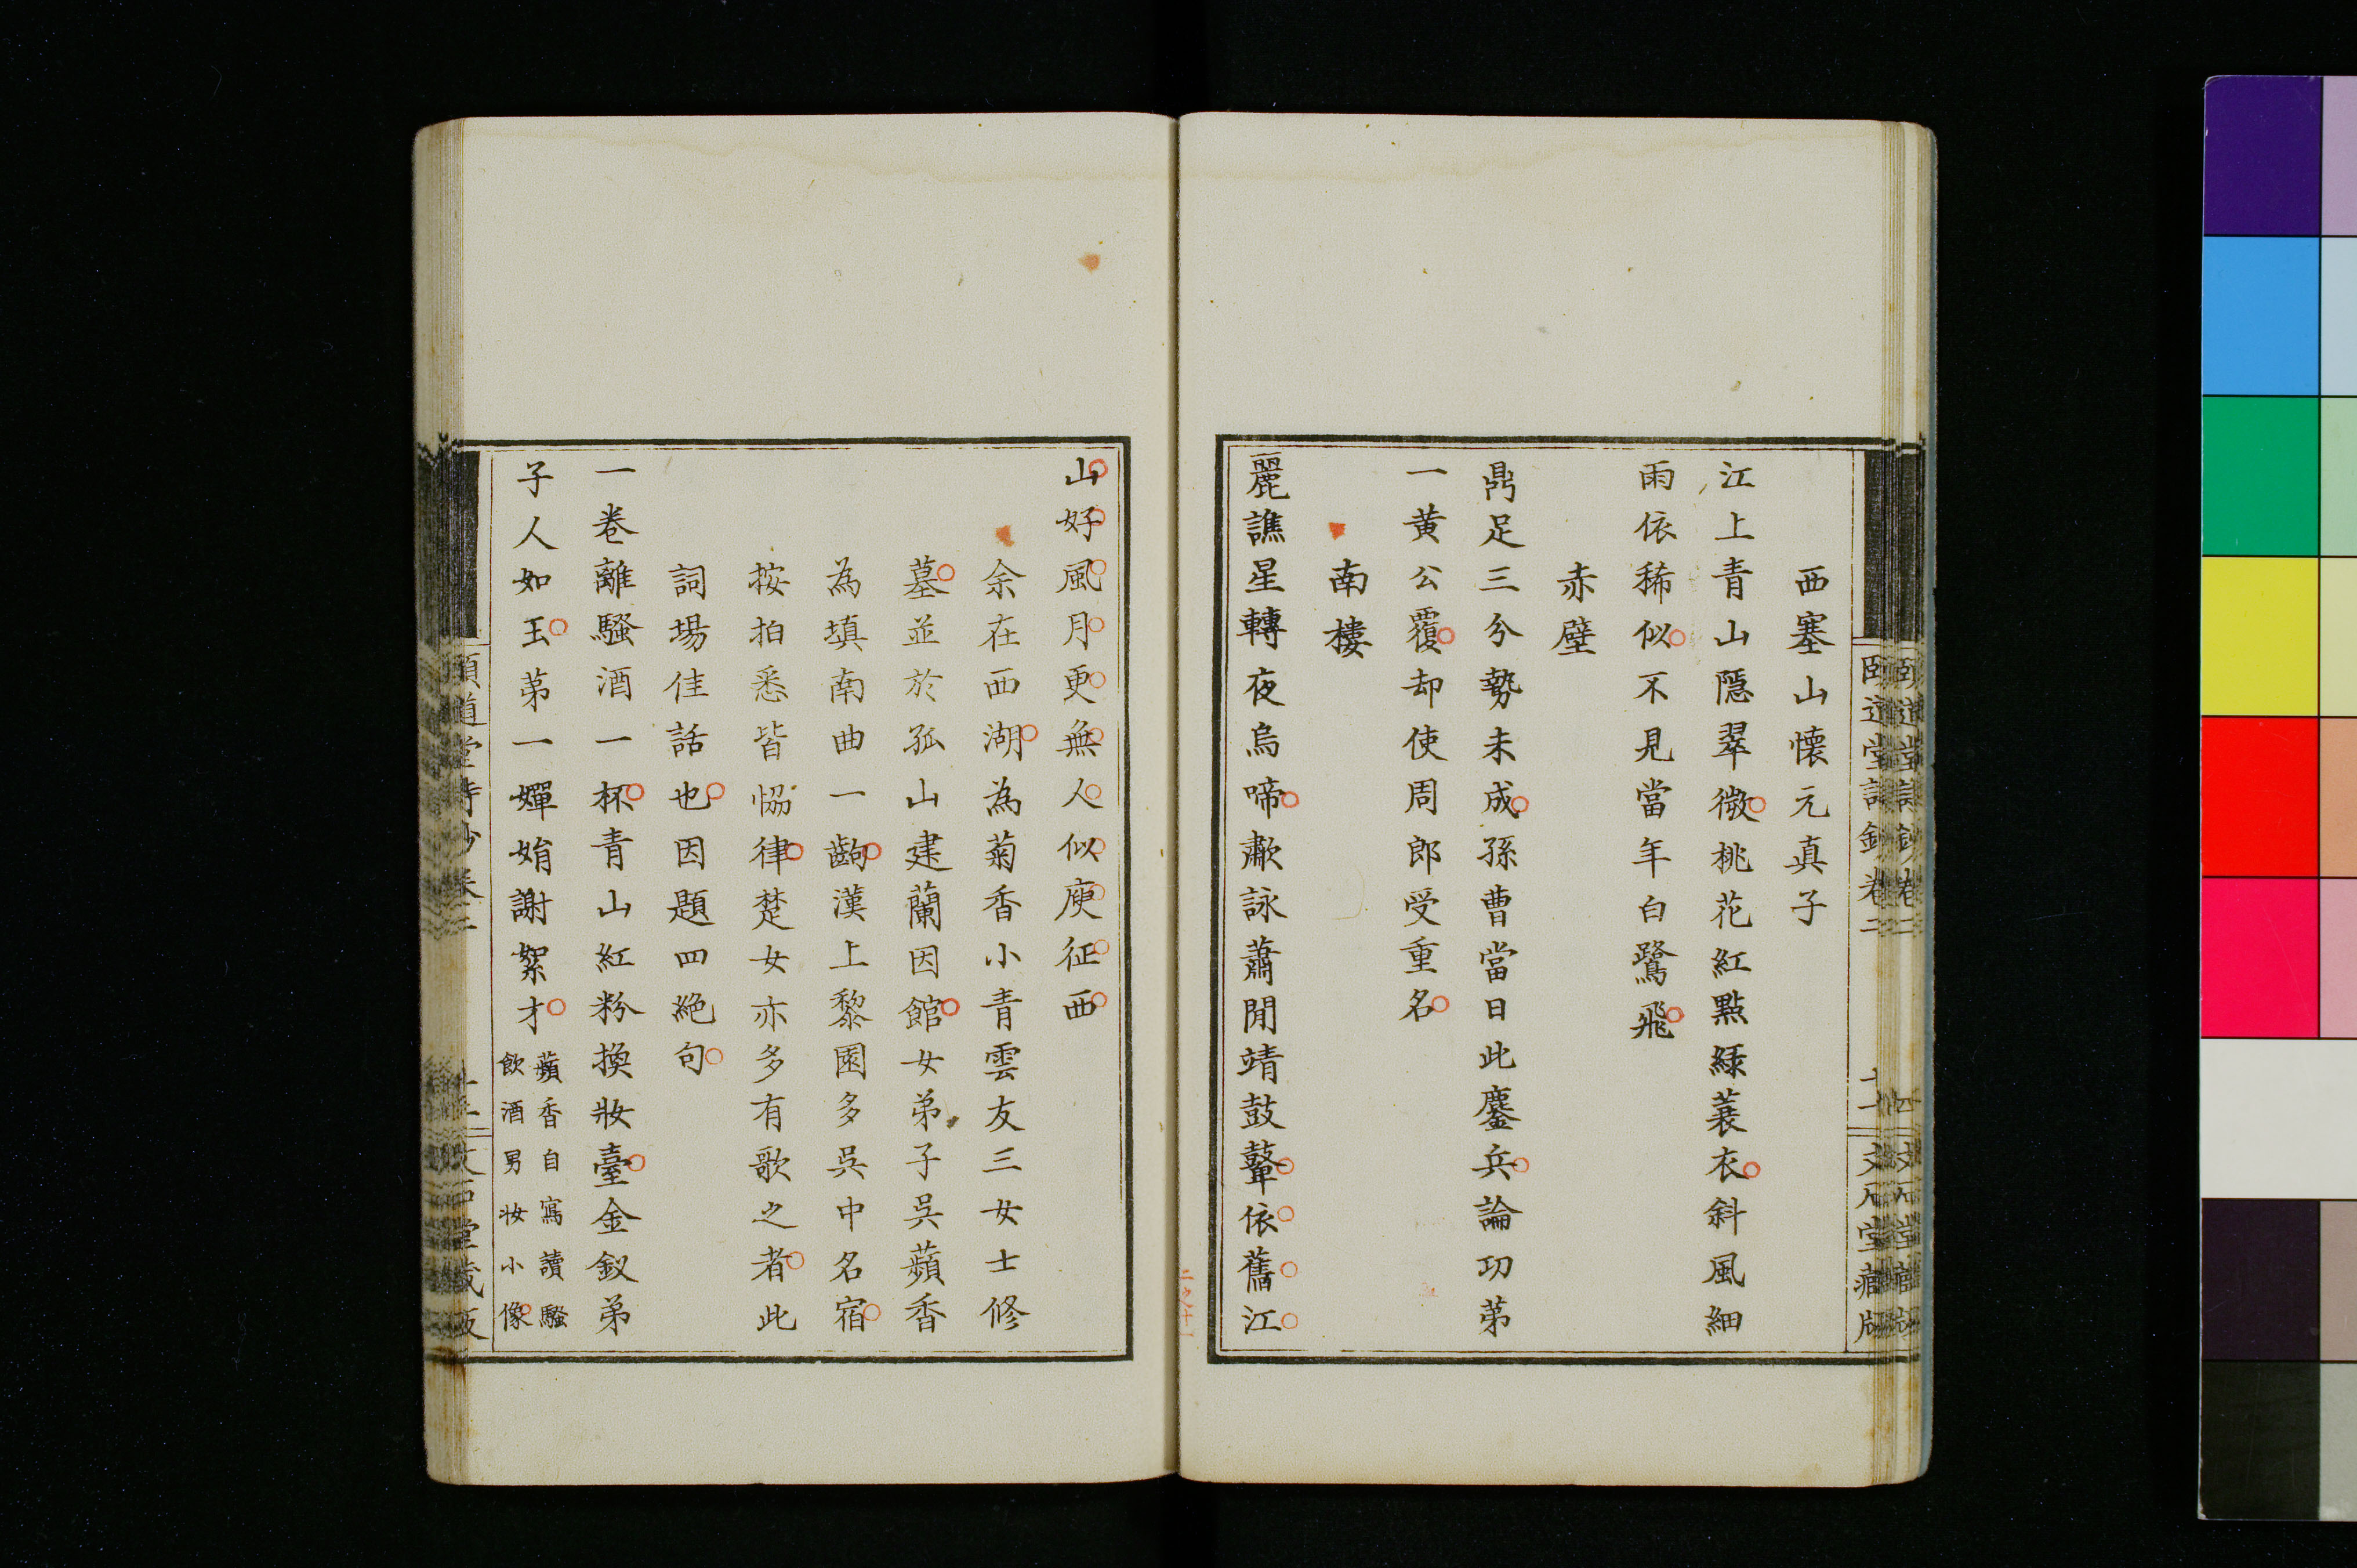 西塞山懷元真子
江上青山隱翠微桃花紅點綠蓑衣斜風細
雨依稀似不見當年白鷺飛
赤壁
鼎足三分勢未成孫曹當日此鏖兵論功第
一黃公覆却使周郎受重名
南樓
麗譙星轉夜烏啼歗詠蕭閒靖鼓鼙依舊江
山好風月更無人似庾征西
余在西湖為菊香小青雲友三女士修
墓並於孤山建蘭因館女弟子吳蘋香
為填南曲一齣漢上黎園多吳中名宿
按拍悉皆恊律楚女亦多有歌之者此
詞場佳話也因題四絕句
一卷離騷酒一杯青山紅粉換妝臺金釵弟
子人如玉第一嬋娟謝絮才
蘋香自寫讀騷
飲酒男妝小像
頤道堂詩鈔卷二
文石堂藏版